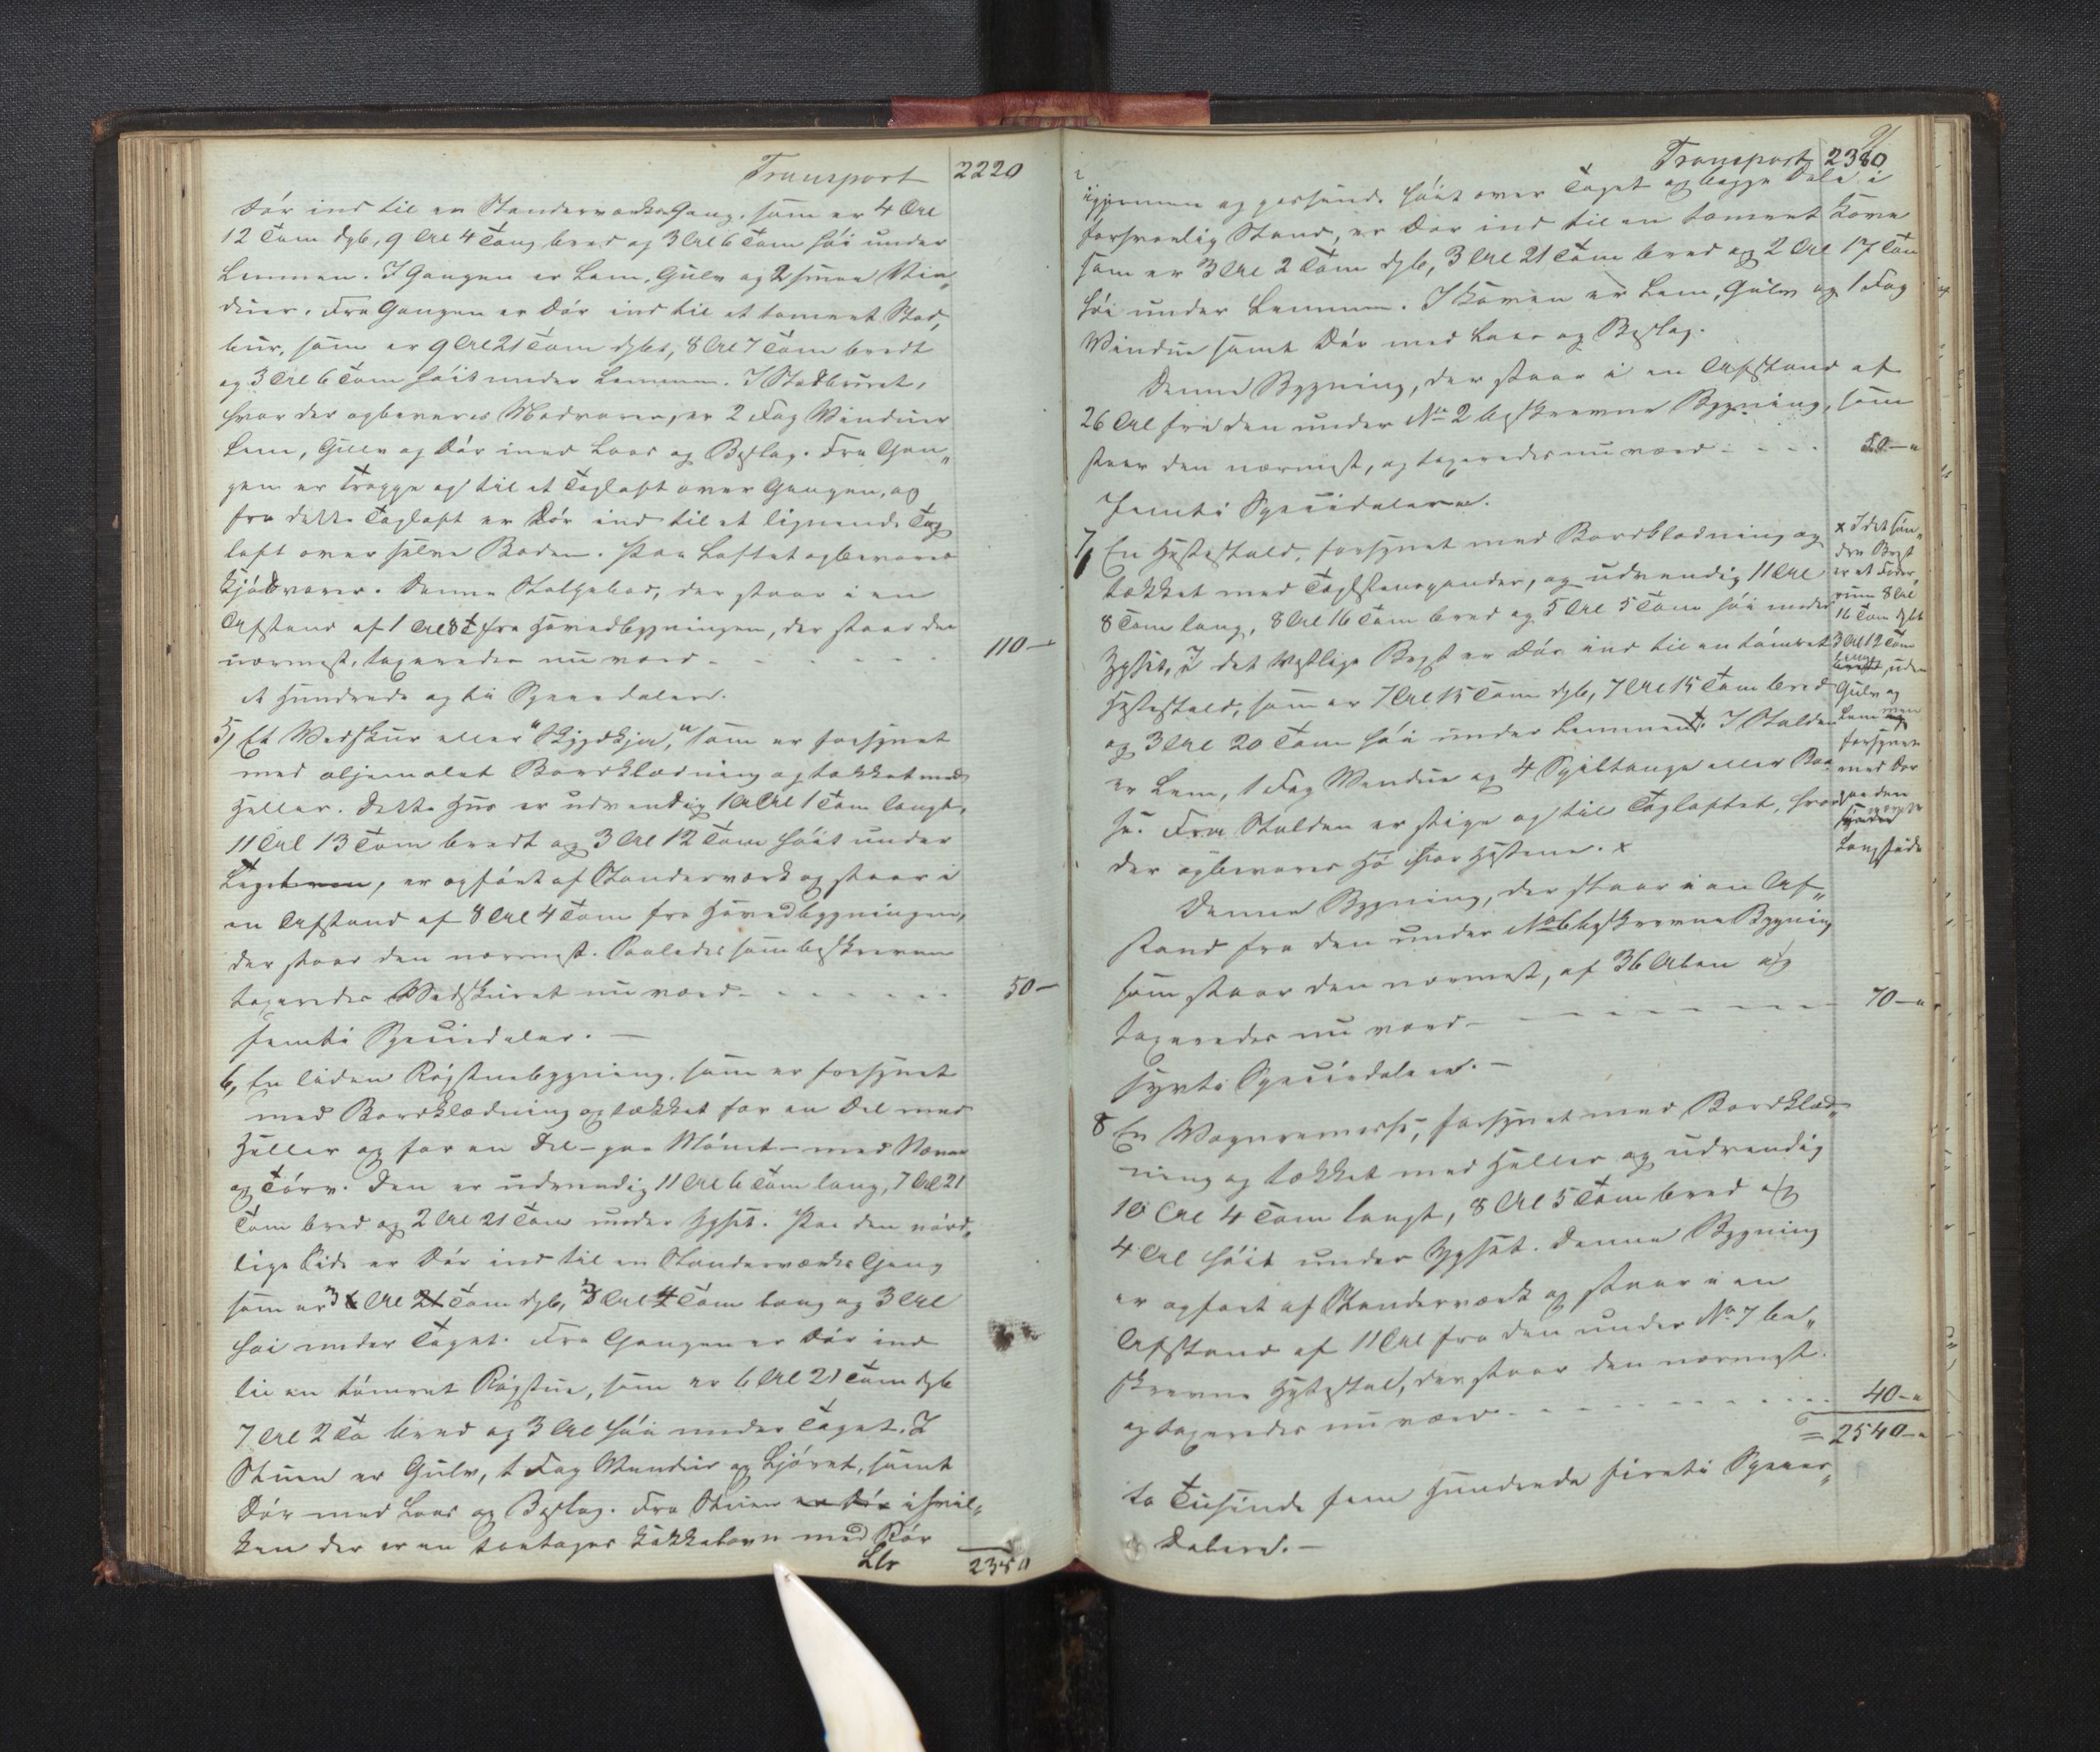 Transport 2220
Dör ind til en Standerværks Gang, som er 4 Al
12 Tom dyb, 9 Al 4 Tom bred og 3 Al 6 Tom höi under
Lemmen. I Gangen er Lem, Gulv og 2 smaa Vin„
duer. Fra Gangen er Dör ind til et tømret Stab„
bur, som er 9 Al 21 Tom dybt, 8 Al 7 Tom bredt
og 3 Al 6 Tom höit under Lemmen. I Stabburet,
hvor der opbevares Madvarer, er 2 Fag Vinduer
Lem, Gulv og Dör med Laas og Beslag. Fra Gan„
gen er Trappe op til et Tagloft over Gangen, og
fra dette Tagloft er Dör ind til et lignende Tag
loft over selve Boden. Paa Loftet opbevares
Kjödvarer. Denne Stolpebod, der staar i en
Afstand af 1 Al 8 T fra Hovedbygningen, der staar den
nærmest, taxeredes nu værd - - - - - - 110 -
et Hundrede og ti Speciedaler.
5, Et Vedskur eller "Skygdkja", som er forsynet
med oljemalet Bordklædning og tækket med
Heller. Dette Hus er udvendig 10 Al 1 Tom langt,
11 Al 13 Tom bredt og 3 Al 12 Tom höit under
Taget, er opfört af Standerværk og staar i
en Afstand af 8 Al 4 Tom fra Hovedbygningen,
der staar den nærmest. Saaledes som beskreven
taxeredes Vedskuret nu værd - - - - - - 50 -
femti Speciedaler. -
6, En liden Rögstuebygning, som er forsynet
med Bordklædning og tækket for en Del med
Heller og for en Del - paa Mönet - med Næver
og Törv. Den er udvendig 11 Al 6 Tom lang, 7 Al 21
Tom bred og 2 Al 21 Tom under Gesims. Paa den nörd„
lige Side er Dör ind til en Standerværks Gang
som er 3 Al Tom dyb, 3 Al 4 Tom lang og 3 Al
höi under Taget. Fra Gangen er Dör ind
til en tömret Rögstue, som er 6 Al 21 Tom dyb
7 Al 2 To bred og 3 Al höi under Taget. I
Stuen er Gulv, 1 Fag Vindue og Ljöret, samt
Dör med Laas og Beslag. Fra Stuen er Dör i hvil„
ken der er en Kakkelovn med Rör
2380
91
Transport 2380
igjennem og forsvarlig höit over Taget og begge Dele i
forsvarlig Stand, er Dör ind til en tømret Kove
som er 3 Al 2 Tom dyb, 3 Al 21 Tom bred og 2 Al 17 Tom
höi under Lemmen. I Koven er Lem, Gulv og 1 Fag
Vindue samt Dör med Laas og Beslag.
Denne Bygning, der staar i en Afstand af
26 Al fra den under No 2 beskrevne Bygning, som
staar den nærmest, og taxeredes nu værd - - - 50 - "
femti Speciedaler.
7, En Hestestald, forsynet med Bordklædning og
tækket med Taglstenspander, og udvendig 11 Al
8 Tom lang, 8 Al 16 Tom bred og 5 Al 5 Tom höi under
Gesims, I det Vestlige Bygt er Dör ind til en tömret
Hestestald, som er 7 Al 15 Tom dyb, 7 Al 15 Tom bred
og 3 Al 20 Tom höi under Lemmen. I Stalden
er Lem, 1 Fag Vindue og 4 Spiltauge eller Baa
se. Fra Stalden er Stige op til Tagloftet, hvor
der opbevares Hö for Hestene. x
x I det sön„
dre Bygt
er et Foder„
rum 8 Al
16 Tom dybt
3 Al 12 Tom
langt, uden
Gulv og
Lem men
forsynet
med Dör
paa den
Langside
Denne Bygning, der staar i en Af„
stand fra den under No 6 beskrevne Bygning
som staar den nærmest, af 36 Alen og
taxeredes nu værd - - - - - - - - 70 - "
Syvti Speciedaler. -
8 En Vognremisse, forsynet med Bordklæd„
ning og tækket med Heller og udvendig
10 Al 4 Tom langt, 8 Al 5 Tom bred og
4 Al höit under Gesims. Denne Bygning
er opfört af Standerværk og staar i en
Afstand af 11 Al fra den under No 7 be„
skrevne Hestestal, der staar den nærmest.
og taxeredes nu værd - - - - - - - - 40 - "
= 2540 - "
to Tusinde fem Hundrede firti Specie„
Daler. -